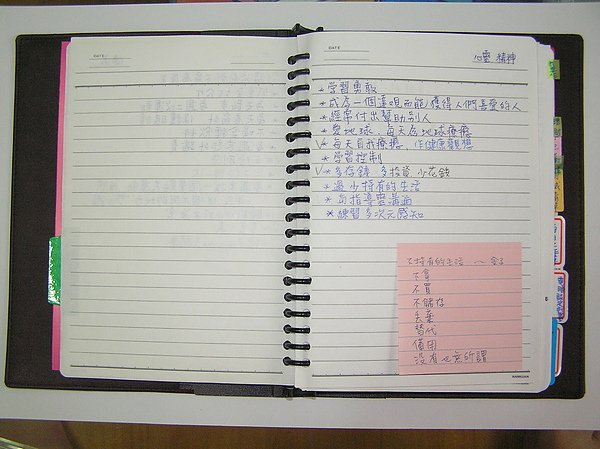 DATE
DATE
心靈 精神
* 學習勇敢
* 成為一個連唄而能獲得人們喜愛的人
* 經常付出幫助別人
* 愛地球、每天為地球療癒
V* 每天自我療癒、作健康觀想
* 學習控制
V* 多存錢 多投資 少花錢
* 過少持有的生活
* 與指導靈溝通
* 練習多次元感知
不持有的生活
不拿
不買
不儲存
丟棄
替代
借用
沒有也無所謂